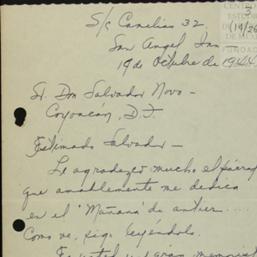 S/c Camelias 32.
San Angel Inn
19 de Octubre de 1944
Sr. Don Salvador Novo -
Coyoacán, D.F.
Estimado Salvador -
Le agradezco mucho el párrafo
que amablemente me dedica
en el "Mañana" de antier....
Como ve, sigo leyéndolo.